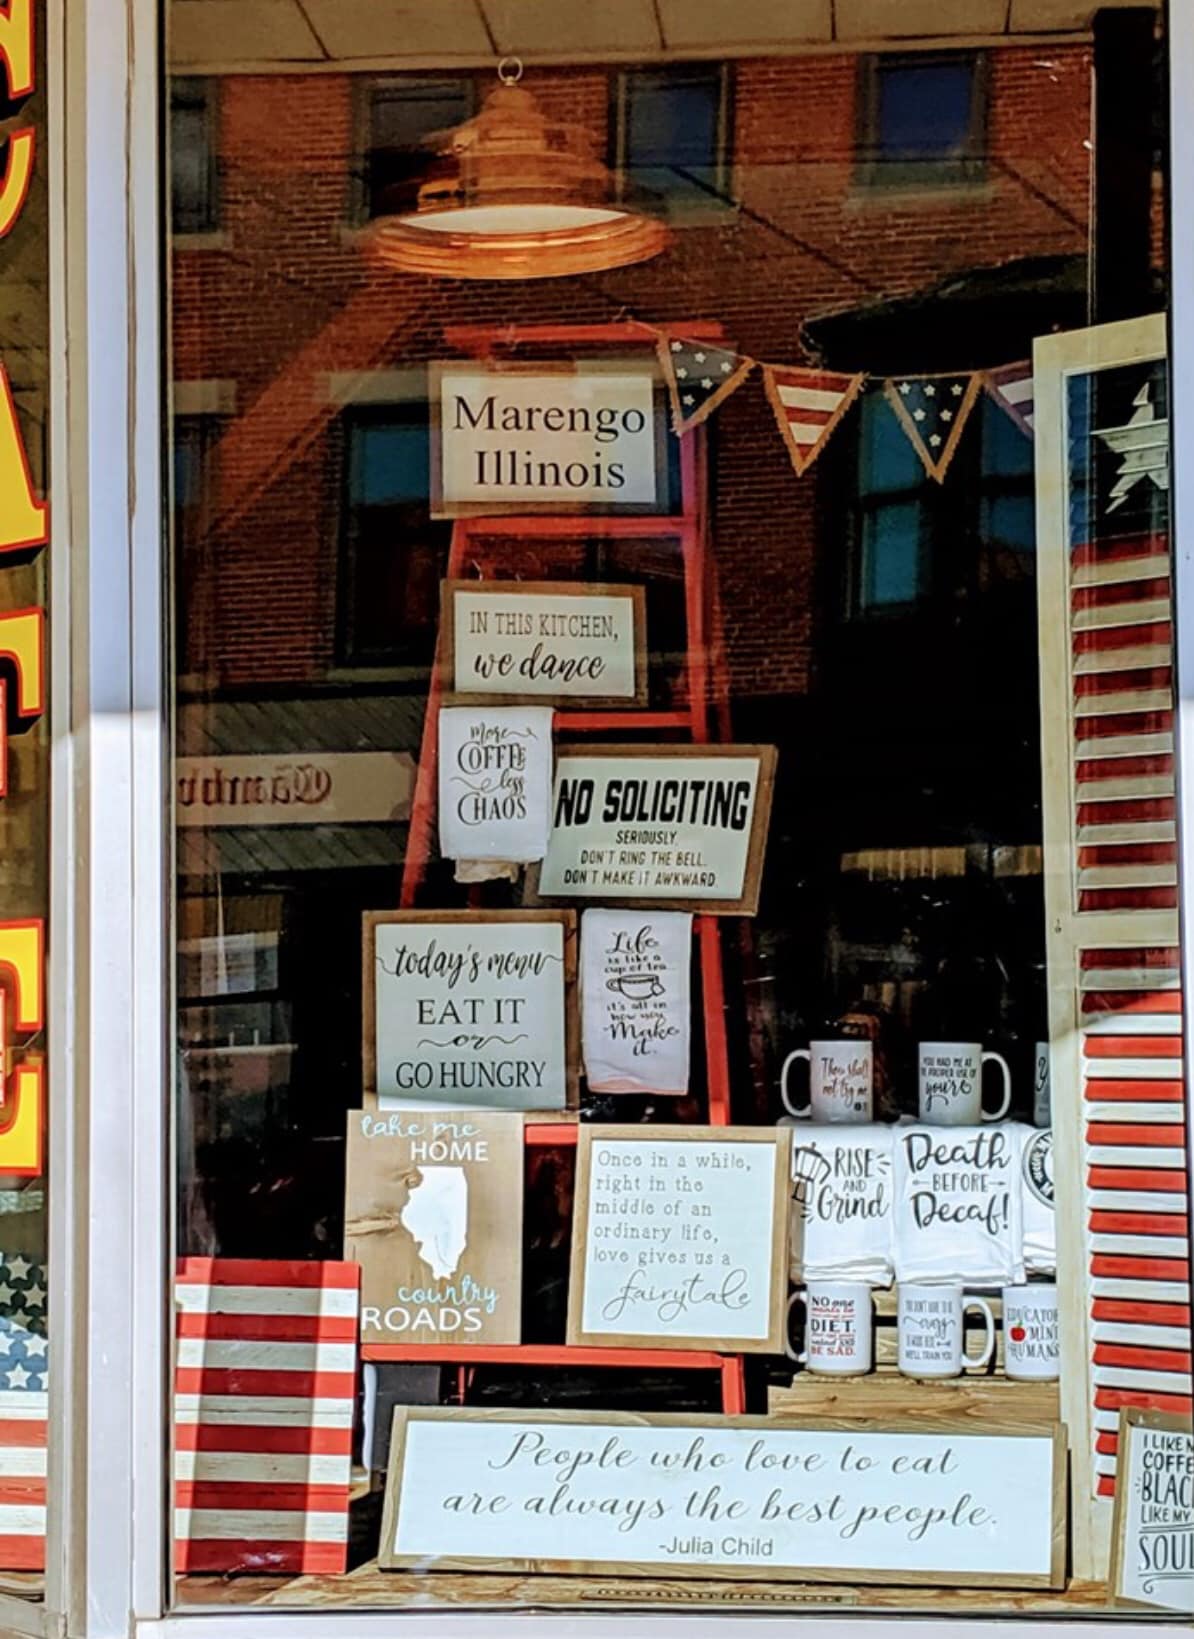 Marengo
Illinois
IN THIS KITCHEN,
we dance
More
COFFEE
less
CHAOS
NO SOLICITING
SERIOUSLY.
DON'T RING THE BELL.
DON'T MAKE IT AWKWARD.
today's menu
EAT IT
or
GO HUNGRY
Life
is like a
cup of tea
it's all in
how you
Make
it.
Thou shalt
not try me
YOU HAD ME AT
THE PROPER USE OF
you're
take me
HOME
country
ROADS
Once in a while,
right in the
middle of an
ordinary life,
love gives us a
fairytale
RISE
AND
Grind
Death
BEFORE
Decaf!
NO one
DIET.
BE SAD.
YOU DON'T HAVE TO BE
crazy
WE'LL TRAIN YOU
EDUCATOR
MINI
HUMANS
People who love to eat
are always the best people.
-Julia Child
I LIKE
COFFE
BLAC
LIKE MY
SOUL